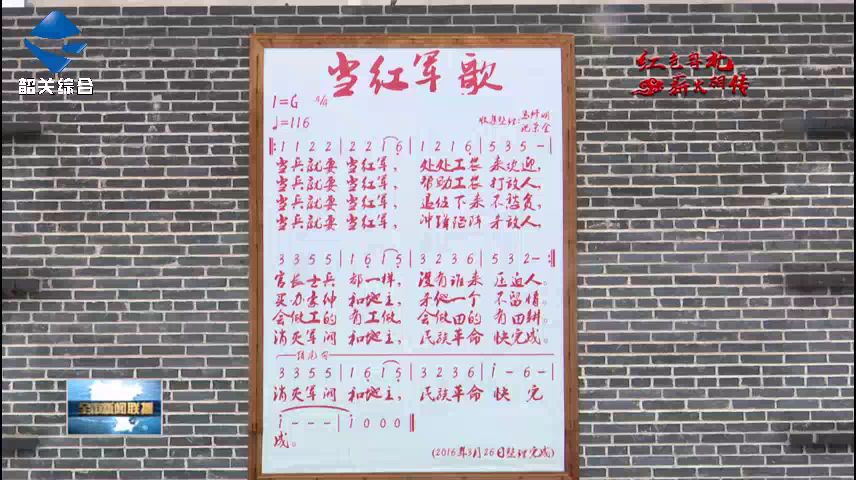 韶关综合
红色粤北
薪火相传
当红军歌
1=G 4/4
♩=116
收集整理:
‖: 1 1 2 2 | 2 2 1 6 | 1 2 1 6 | 5 3 5 - |
当兵就要 当红军， 处处工农 来欢迎，
当兵就要 当红军， 帮助工农 打敌人，
当兵就要 当红军， 退伍下来 不愁食，
当兵就要 当红军， 冲锋陷阵 杀敌人，
3 3 5 5 | 1 6 1 5 | 3 2 3 6 | 5 3 2 - :‖
官长士兵 都一样， 没有谁来 压迫人。
买办豪绅 和地主， 杀他一个 不留情。
会做工的 有工做， 会做田的 有田耕。
消灭军阀 和地主， 民族革命 快完成。
结尾句
3 3 5 5 | 1 6 1 5 | 3 2 3 6 | i - 6 - |
消灭军阀 和地主， 民族革命 快 完
i - - - | i 0 0 0 ‖
成。
(2016年3月26日整理完成)
全市新闻联播